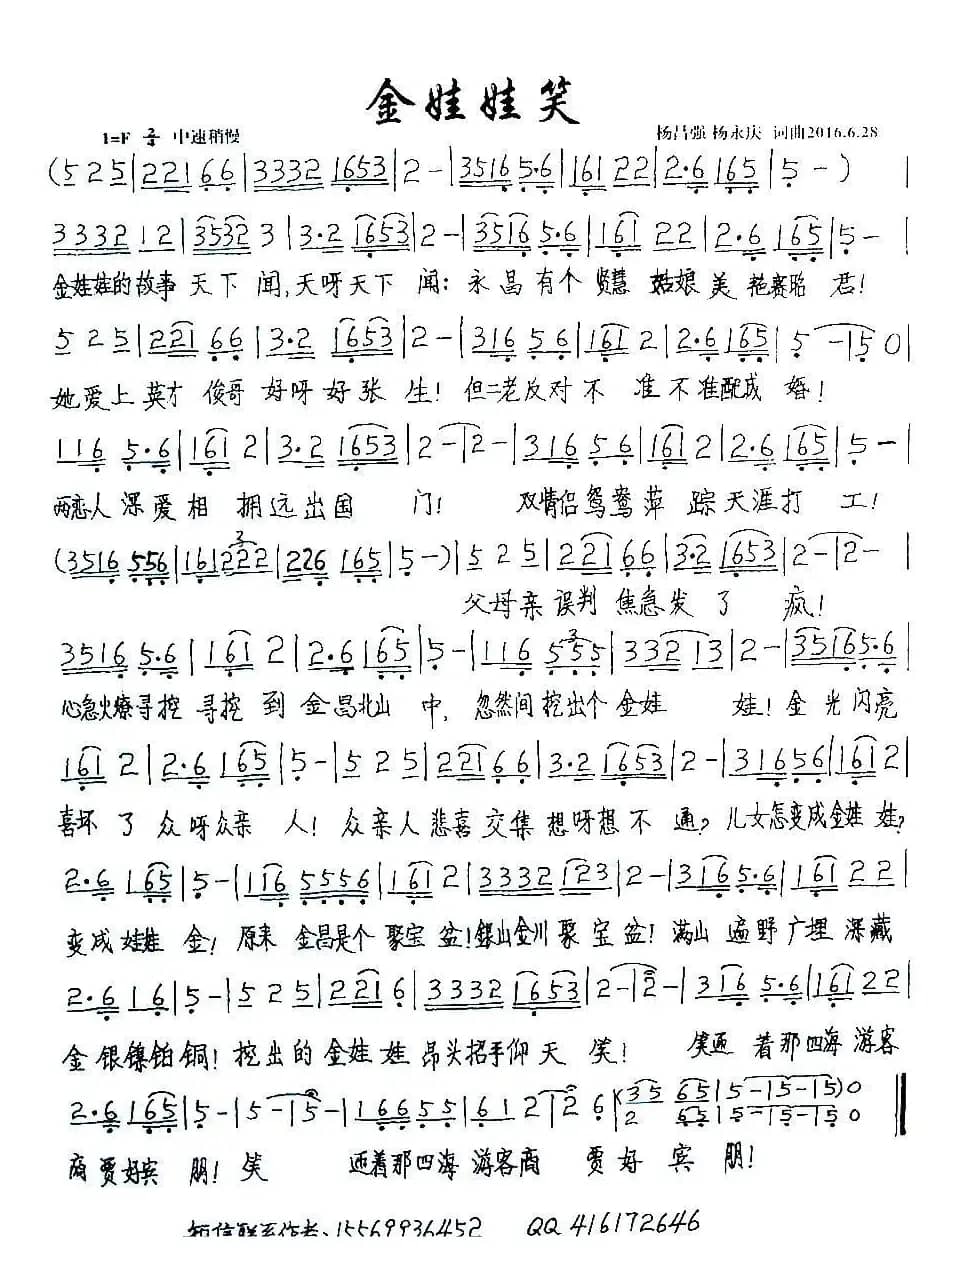 金娃娃笑
1=F 2/4 中速稍慢 杨昌强 杨永庆 词曲2016.6.28
(5 2 5|2 2 1 6 6|3 3 3 2 1 6 5 3|2 -|3 5 1 6 5·6|1 6 1 2 2|2·6 1 6 5|5 -) |
3 3 3 2 1 2|3 5 3 2 3|3·2 1 6 5 3|2 -|3 5 1 6 5·6|1 6 1 2 2|2·6 1 6 5|5 - |
金娃娃的故事天下闻,天呀天下闻:永昌有个贤慧姑娘美艳赛昭君!
5 2 5|2 2 1 6 6|3·2 1 6 5 3|2 -|3 1 6 5 6|1 6 1 2|2·6 1 6 5|5 - |5 0
她爱上英才俊哥好呀好张生!但二老反对不准不准配成婚!
1 1 6 5·6|1 6 1 2|3·2 1 6 5 3|2 - |2 -|3 1 6 5 6|1 6 1 2|2·6 1 6 5|5 - |
两恋人深爱相拥远出国门!双情侣鸳鸯萍踪天涯打工!
(3 5 1 6 5 5 6|1 6 1 2 2 2|2 2 6 1 6 5|5 -)|5 2 5|2 2 1 6 6|3·2 1 6 5 3|2 - |2 - |
父母亲误判焦急发了疯!
3 5 1 6 5·6|1 6 1 2|2·6 1 6 5|5 -|1 1 6 5 5 5|3 3 2 1 3|2 -|3 5 1 6 5·6
心急火燎寻挖寻挖到金昌北山中,忽然间挖出个金娃娃!金光闪亮
1 6 1 2|2·6 1 6 5|5 -|5 2 5|2 2 1 6 6|3·2 1 6 5 3|2 -|3 1 6 5 6|1 6 1 2|
喜坏了众呀众亲人!众亲人悲喜交集想呀想不通?儿女怎变成金娃娃?
2·6 1 6 5|5 -|1 1 6 5 5 5 6|1 6 1 2|3 3 3 2 1 2 3|2 -|3 1 6 5·6|1 6 1 2 2|
变成娃娃金!原来金昌是个聚宝盆!银山金川聚宝盆!满山遍野广埋深藏
2·6 1 6|5 -|5 2 5|2 2 1 6|3 3 3 2 1 6 5 3|2 - |2 -|3 1 6 5·6|1 6 1 2 2|
金银镍铂铜!挖出的金娃娃昂头招手仰天笑!笑迎着那四海游客
2·6 1 6 5|5 -|5 - |5 -|1 6 6 5 5|6 1 2|2 6|3 5 6 5|5 - |5 - |5)0
2 6 5|5 - |5 - |5 0
商贾好宾朋!笑迎着那四海游客商贾好宾朋!
短信联系作者:15569936452 QQ 416172646